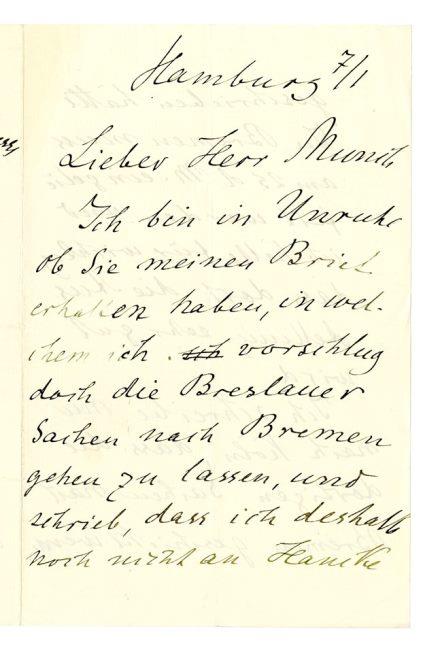 Hamburg 7/1
Lieber Herr Munch
Ich bin in Unruhe
ob Sie meinen Brief
erhalten haben, in wel-
chem ich vorschlug
doch die Breslauer
Sachen nach Bremen
gehen zu lassen, und
schrieb, dass ich deshalb
noch nicht an Hancke